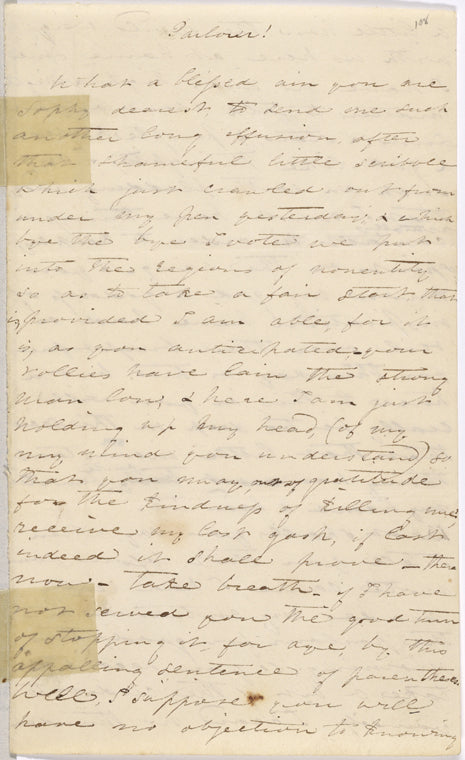 108
Parlour!
What a blessed ain you are
Sophy dearest to send me such
another long effusion, after
that shameful little scribble
which just crawled out from
under my pen yesterday; & which
bye the bye I vote we put
into the regions of nonentity
so as to take a fair start that
is, provided I am able, for it
is, as you anticipated - your
vollies have lain the strong
man low, & here I am just
holding up my head, (of my
my mind you understand) so
that you may, out of gratitude
for the kindness of killing me,
receive my last gash, if last
indeed it shall prove - there
now - take breath - if I have
not served you the good turn
of stopping it for aye, by this
appalling sentence of parentheses
Well, I suppose you will
have no objection to knowing